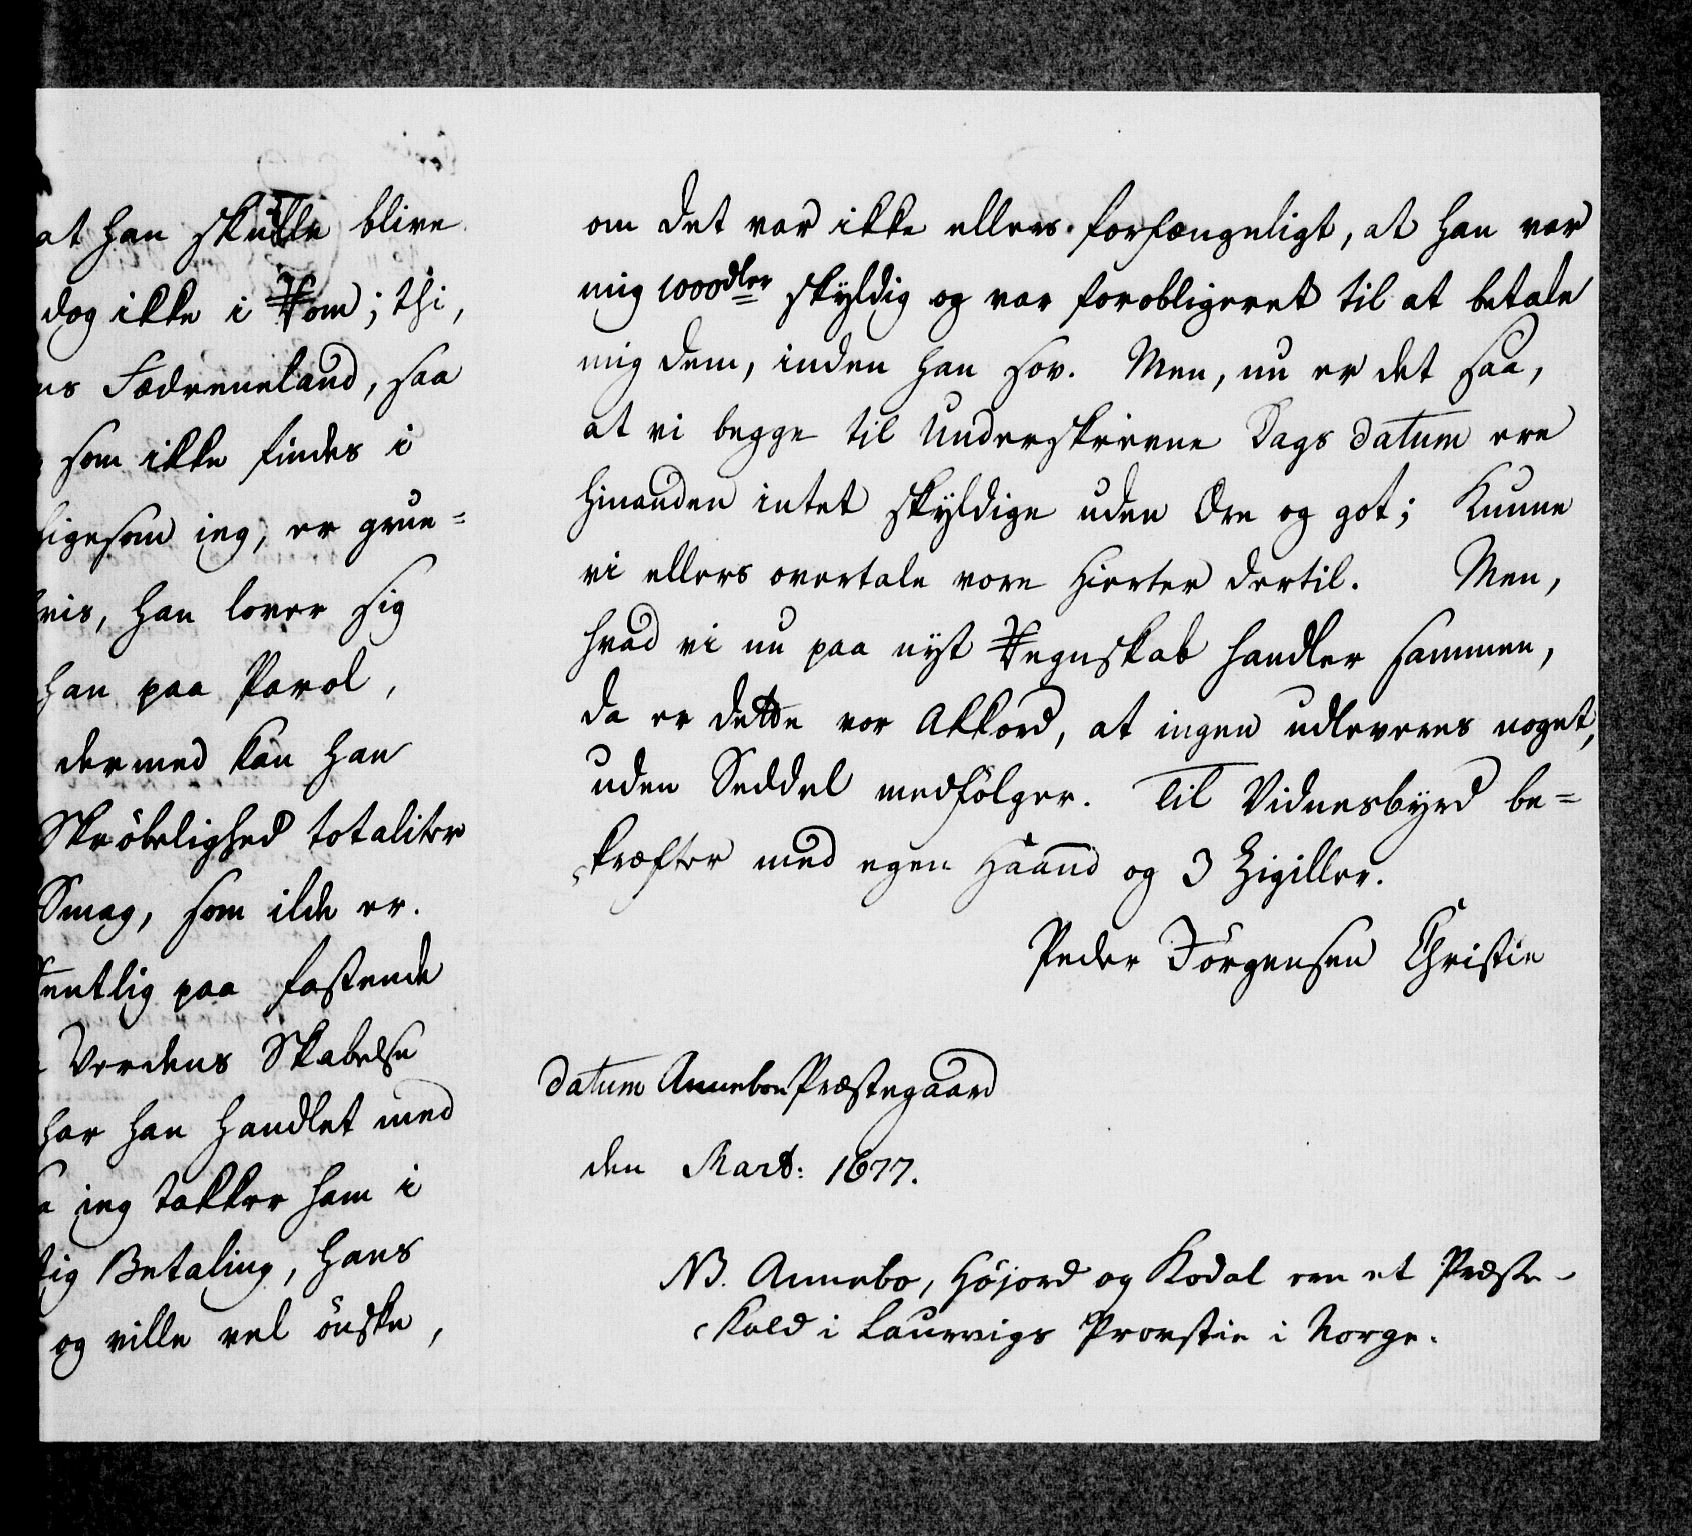 at han skulle blive
dog ikke i Rom; thi,
ns Fædreneland, saa
som ikke findes i
ligesom ieg, er grue=
vis, han lover sig
han paa Parol,
dermed kan han
Skröbelighed totaliter
Smag, som ilde er.
entlig paa fastende
Verdens Skabelse
har han handlet med
ieg takker ham i
tig Betaling, hans
og ville vel önske,
om det var ikke ellers forfængeligt, at han var
mig 1000dler skyldig og var forobligeret til at betale
mig dem, inden han sov. Men, nu er det saa,
at vi begge til underskrevne Dags datum ere
hinanden intet skyldige uden Ære og got; kunne
vi ellers overtale vore Hierter dertil. Men,
hvad vi nu paa nyt Regnskab handler sammen,
da er dette vor Akkord, at ingen udleveres noget,
uden Seddel medfölger. Til Vidnesbyrd be=
kræfter med egen Haand og 3 Zigiller.
Peder Jörgensen Christie
datum Anneboe Præstegaard
den Mart: 1677.
NB. Annebo, Höjord og Kodal ere et Præste-
Kald i Laurvigs Provstie i Norge.